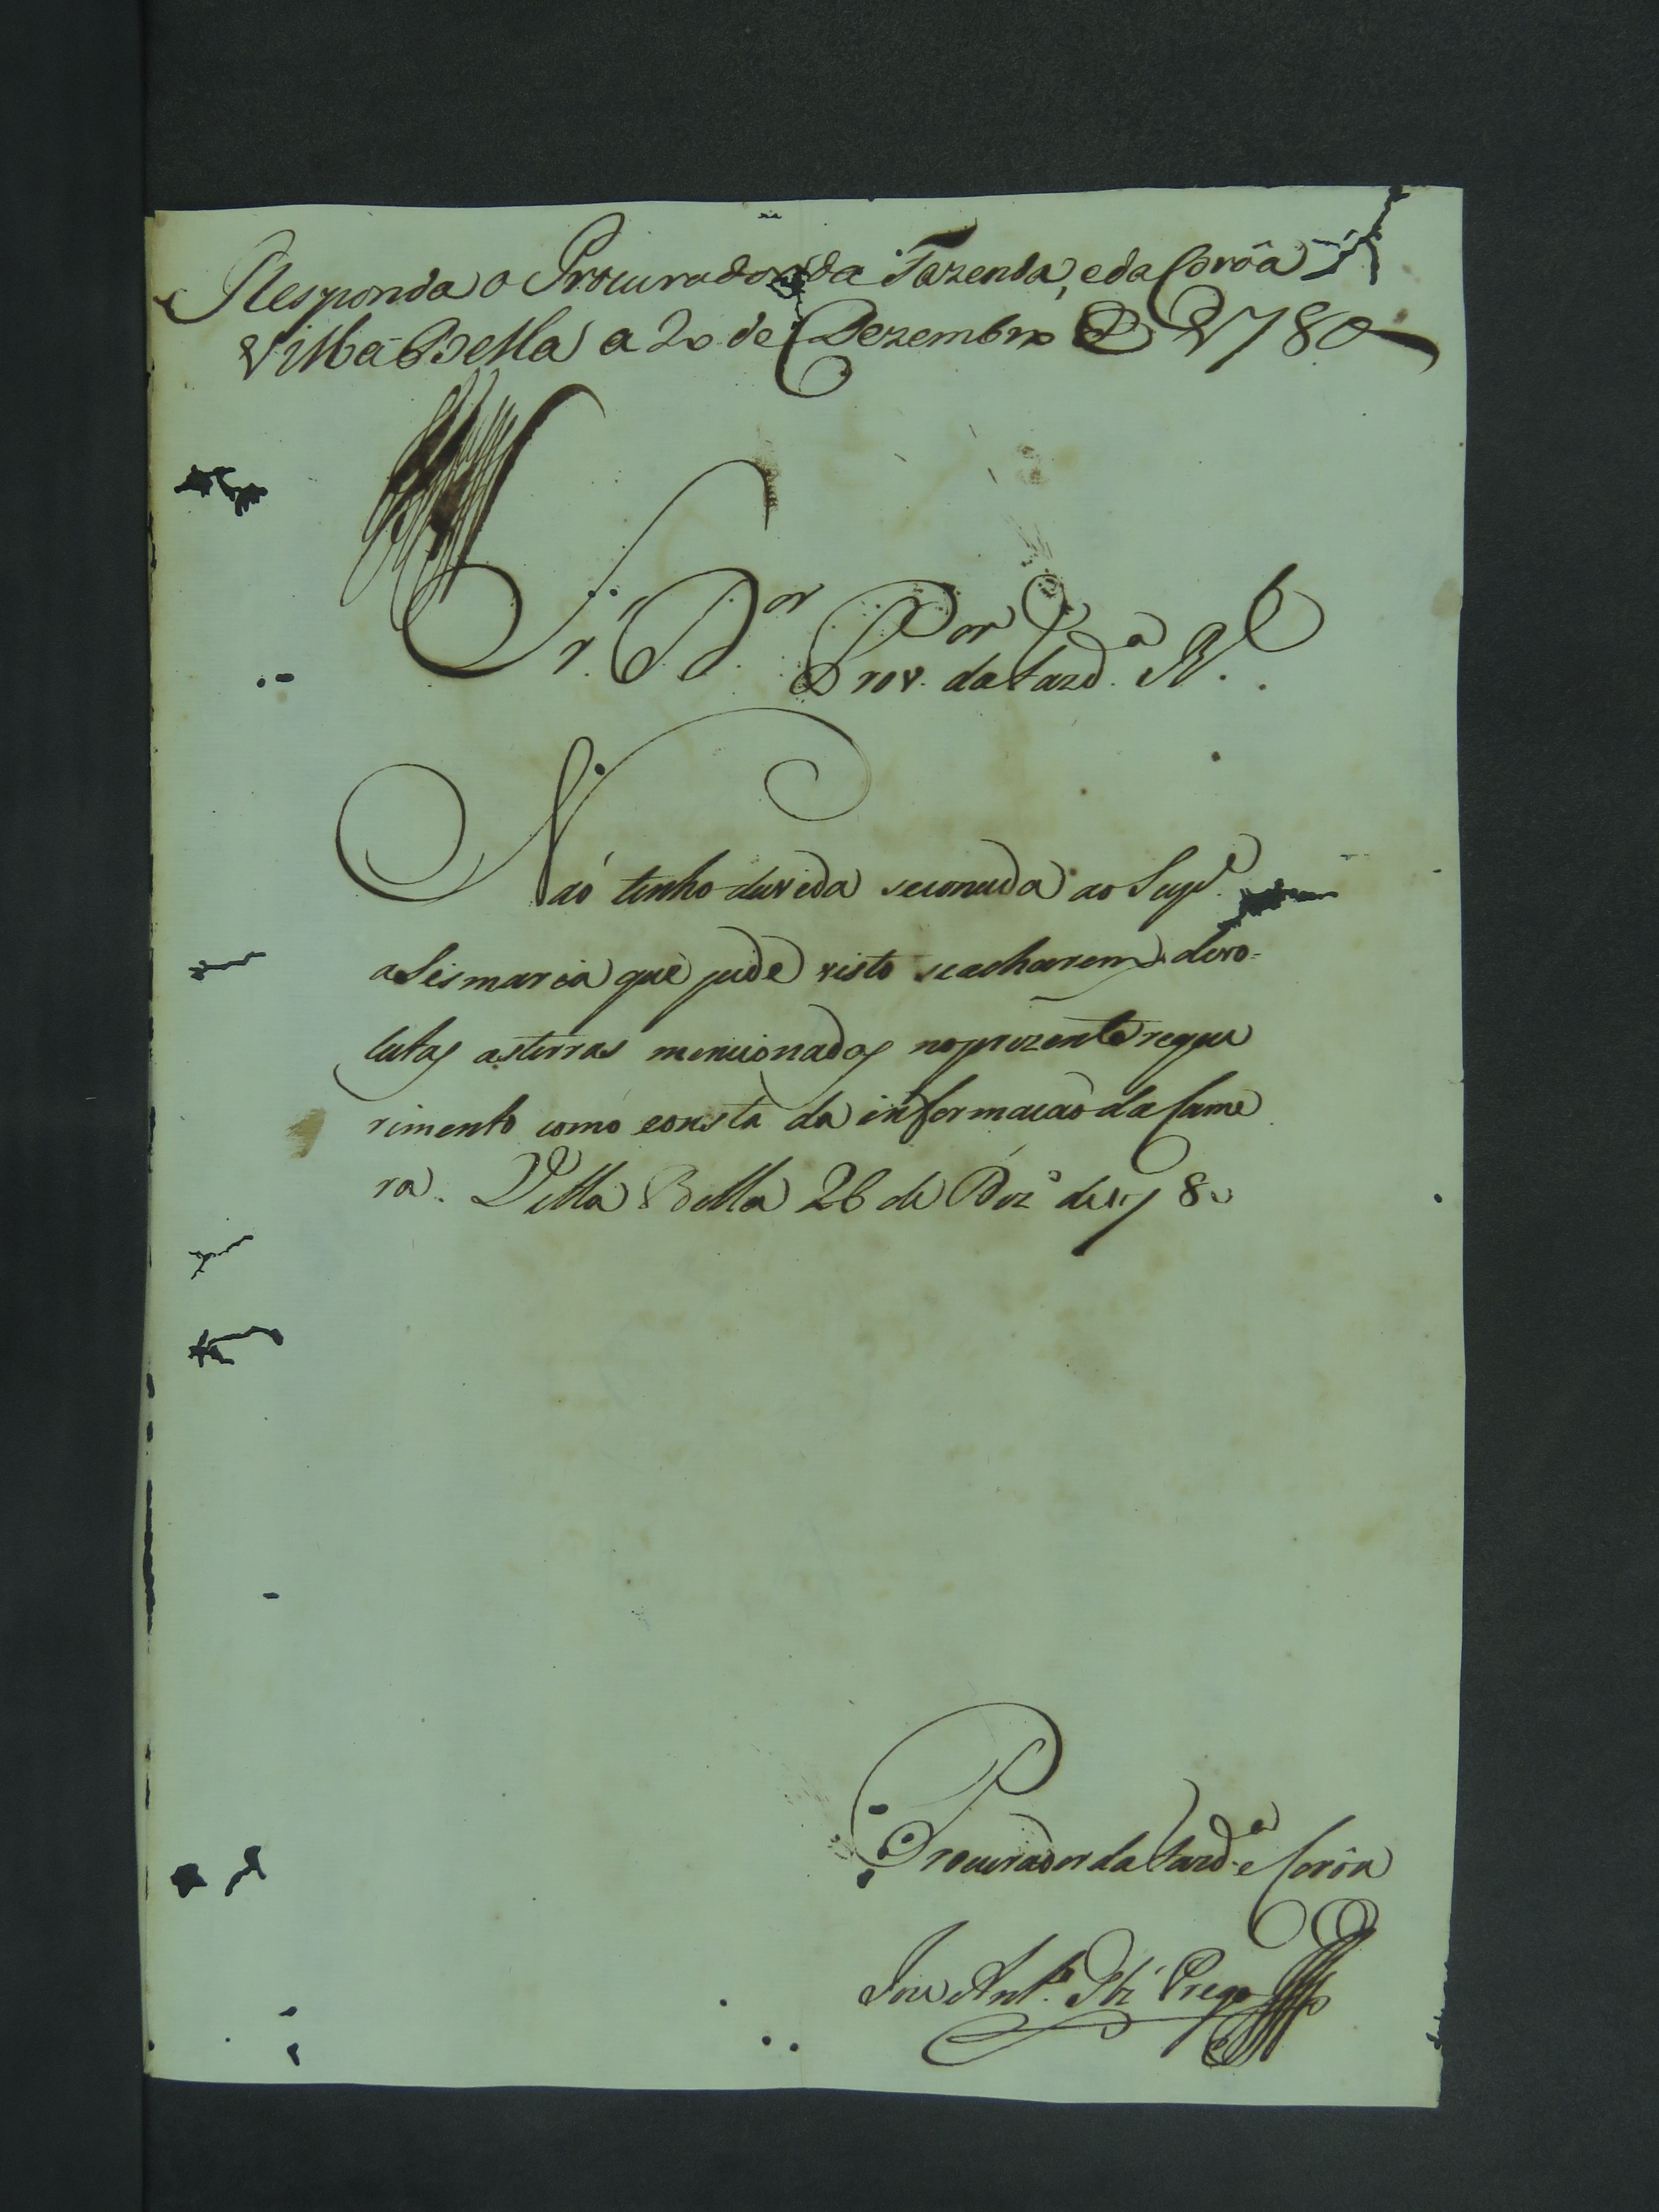 Responda o Procurador da Fazenda, e da Corôa
Villa Bella a 20 de Dezembro de 1780
Sr. Dor Provor da Fazda Rl.
Naó tenho duvida seconceda ao Supe
a Sesmaria que pede visto seacharem devo-
lutas asterras mencionadas noprezente reque
rimento como consta da informacaó da Came
ra. Villa Bella 26 de Dezo de 1780
Procurador da Fazda e Corôa
Joze Anto